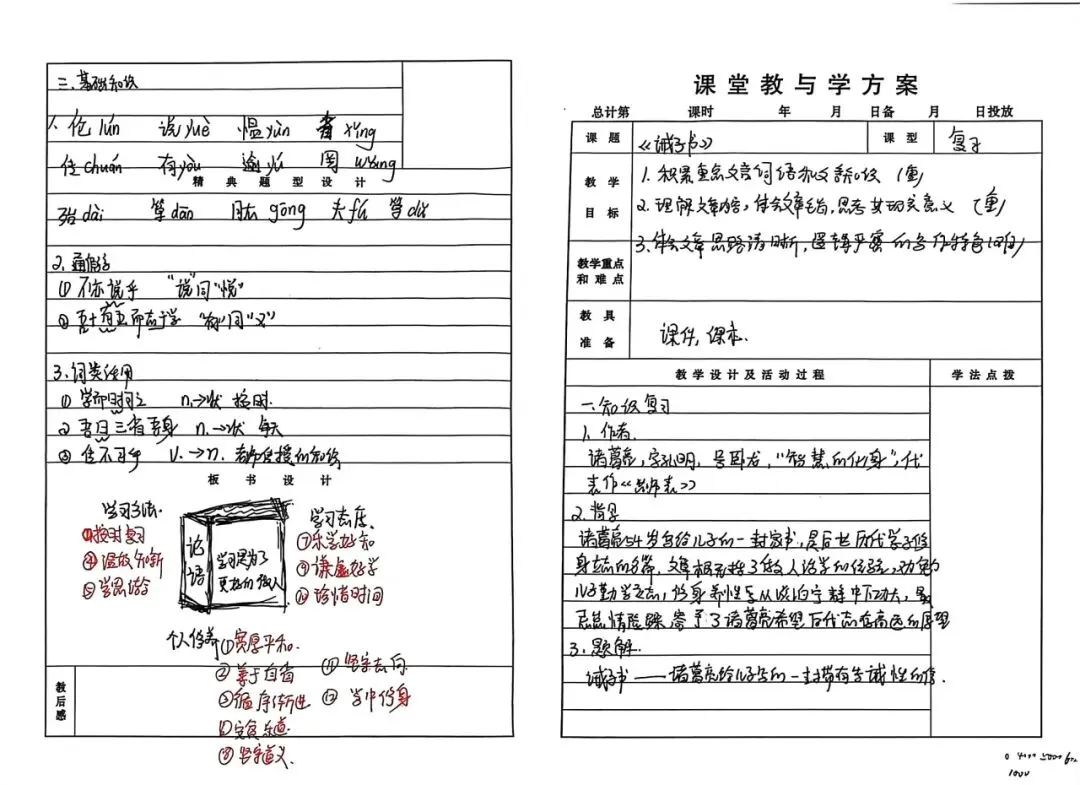 三、基础知识
1. 伦lún 说yuè 愠yùn 省xǐng
传chuán 有yòu 逾yú 罔wǎng
精 典 题 型 设 计
殆dài 箪dān 肱gōng 夫fú 笃dǔ
2. 通假字
① 不亦说乎 "说"同"悦"
② 吾十有五而志于学 "有"同"又"
3. 词类活用
① 学而时习之 n.→状 按时.
② 吾日三省吾身 n.→状 每天
③ 传不习乎 v.→n. 老师传授的知识
板 书 设 计
学习方法.
①按时复习
④温故知新
⑤学思结合
论语
学习是为了
更好的做人
学习态度.
⑦乐学好知
⑨谦虚好学
⑩珍惜时间
个人修养
①宽厚平和.
②善于自省
③循序渐进
⑧坚守道义.
⑪坚守志向
⑫学中修身
教后感
课堂教与学方案
总计第 课时 年 月 日备 月 日投放
课 题 《诫子书》 课 型 复习
教 学 目 标
1. 积累重点文言词语和文言知识 (重)
2. 理解文章内容,体会文章主旨,思考其现实意义 (重)
3. 体会文章思路清晰,逻辑严密的写作特色(难)
教学重点和难点
教 具 准 备 课件,课本.
教 学 设 计 及 活 动 过 程 学 法 点 拨
一.知识复习
1. 作者.
诸葛亮,字孔明,号卧龙,"智慧的化身",代
表作《出师表》
2. 背景
诸葛亮54岁写给儿子的一封家书,是后世历代学子修
身立志的名篇,文章概括了做人治学的经验,劝勉
儿子勤学立志,修身养性要从淡泊宁静中下功夫,最
忌怠惰险躁寄予了诸葛亮希望后代志存高远的厚望
3. 题解.
诫子书——诸葛亮给儿子写的一封带有告诫性的信.